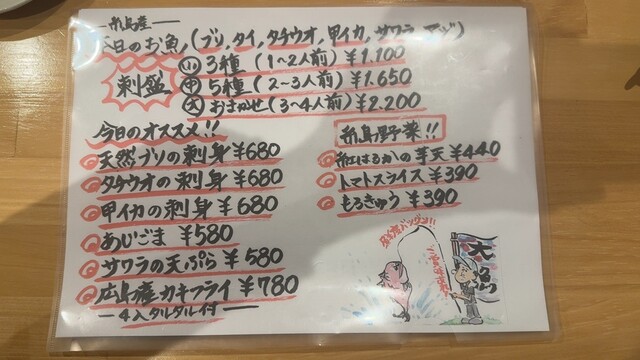 糸島産
本日のお魚(ブリ,タイ,タチウオ,甲イカ,サワラ,アジ)
刺盛
小 3種(1〜2人前)¥1.100
中 5種(2〜3人前)¥1.650
大 おまかせ(3〜4人前)¥2.200
今日のオススメ!!
天然ブリの刺身 ¥680
タチウオの刺身 ¥680
甲イカの刺身 ¥680
あじごま ¥580
サワラの天ぷら ¥580
広島産カキフライ ¥780
4入タルタル付
糸島野菜!!
紅はるかの芋天 ¥440
トマトスライス ¥390
もろきゅう ¥390
大